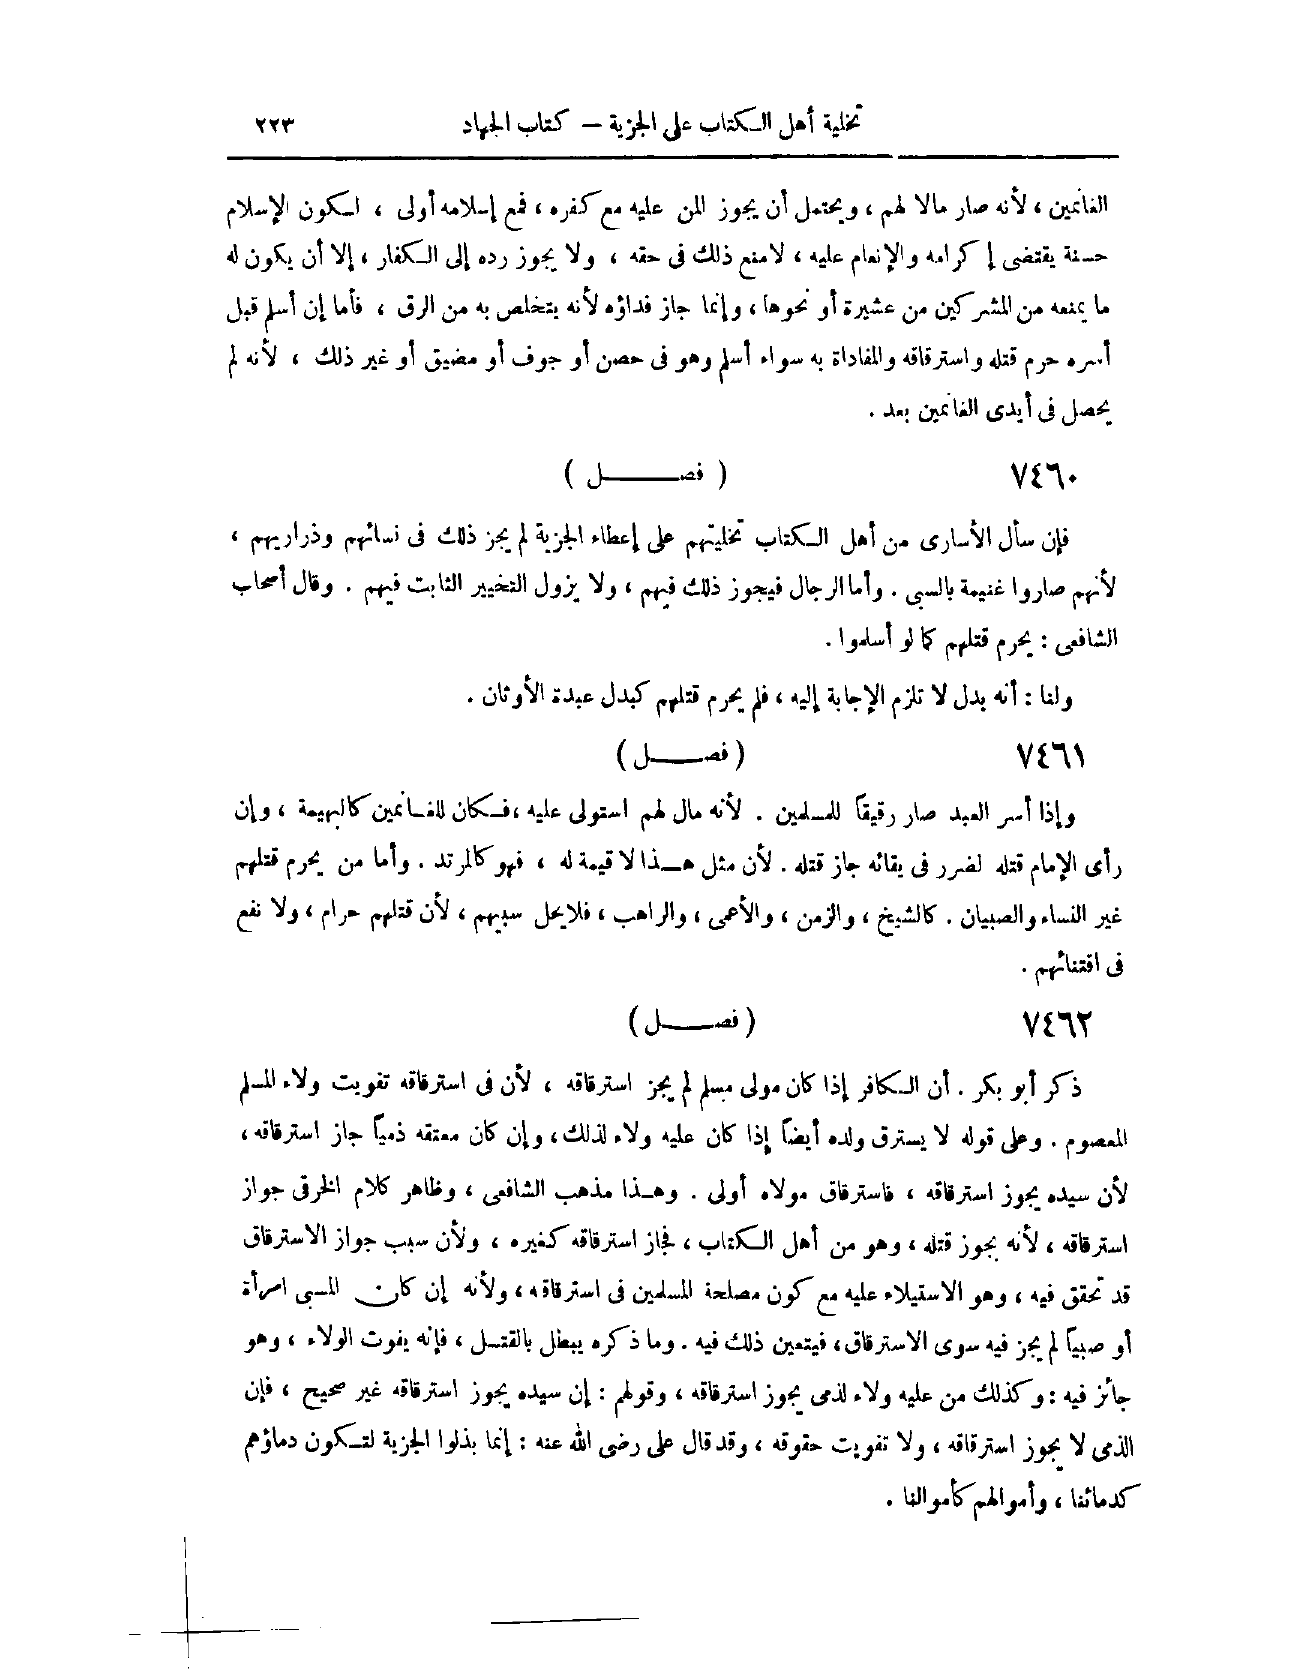 تخلية أهل الكتاب على الجزية – كتاب الجهاد ٢٢٣
الغانمين ، لأنه صار مالا لهم ، ويحتمل أن يجوز المن عليه مع كفره ، فمع إسلامه أولى ، لكون الإسلام
حسنة يقتضى إكرامه والإنعام عليه ، لا منع ذلك فى حقه ، ولا يجوز رده إلى الكفار ، إلا أن يكون له
ما يمنعه من المشركين من عشيرة أو نحوها ، وإنما جاز فداؤه لأنه يتخلص به من الرق ، فأما إن أسلم قبل
أسره حرم قتله واسترقاقه والمفاداة به سواء أسلم وهو فى حصن أو جوف أو مضيق أو غير ذلك ، لأنه لم
يحصل فى أيدى الغانمين بعد .
٧٤٦٠ ( فصـــــل )
فإن سأل الأسارى من أهل الكتاب تخليتهم على إعطاء الجزية لم يجز ذلك فى نسائهم وذراريهم ،
لأنهم صاروا غنيمة بالسبى . وأما الرجال فيجوز ذلك فيهم ، ولا يزول التخيير الثابت فيهم . وقال أصحاب
الشافعى : يحرم قتلهم كما لو أسلموا .
ولنا : أنه بدل لا تلزم الإجابة إليه ، فلم يحرم قتلهم كبدل عبدة الأوثان .
٧٤٦١ ( فصـــــل )
وإذا أسر العبد صار رقيقاً للمسلمين . لأنه مال لهم استولى عليه ، فكان للغانمين كالبهيمة ، وإن
رأى الإمام قتله لضرر فى بقائه جاز قتله . لأن مثل هـذا لا قيمة له ، فهو كالمرتد . وأما من يحرم قتلهم
غير النساء والصبيان . كالشيخ ، والزمن ، والأعمى ، والراهب ، فلا يحل سبيهم ، لأن قتلهم حرام ، ولا نفع
فى اقتنائهم .
٧٤٦٢ ( فصـــــل )
ذكر أبو بكر . أن الكافر إذا كان مولى مسلم لم يجز استرقاقه ، لأن فى استرقاقه تفويت ولاء المسلم
المعصوم . وعلى قوله لا يسترق ولده أيضاً إذا كان عليه ولاء لذلك ، وإن كان معتقه ذمياً جاز استرقاقه ،
لأن سيده يجوز استرقاقه ، فاسترقاق مولاه أولى . وهـذا مذهب الشافعى ، وظاهر كلام الخرقى جواز
استرقاقه ، لأنه يجوز قتله ، وهو من أهل الكتاب ، فجاز استرقاقه كغيره ، ولأن سبب جواز الاسترقاق
قد تحقق فيه ، وهو الاستيلاء عليه مع كون مصلحة المسلمين فى استرقاقه ، ولأنه إن كان المسبى امرأة
أو صبياً لم يجز فيه سوى الاسترقاق ، فيتعين ذلك فيه . وما ذكره يبطل بالقتـل ، فإنه يفوت الولاء ، وهو
جائز فيه : وكذلك من عليه ولاء لذمى يجوز استرقاقه ، وقولهم : إن سيده يجوز استرقاقه غير صحيح ، فإن
الذمى لا يجوز استرقاقه ، ولا تفويت حقوقه ، وقد قال على رضى الله عنه : إنما بذلوا الجزية لتكون دماؤهم
كدمائنا ، وأموالهم كأموالنا .